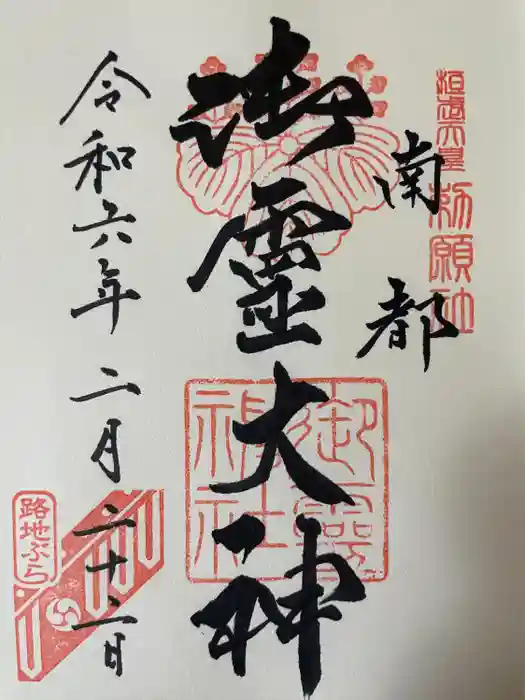 桓武天皇勅願社
南都
御靈大神
御霊神社
令和六年二月二十二日
路地ぶら